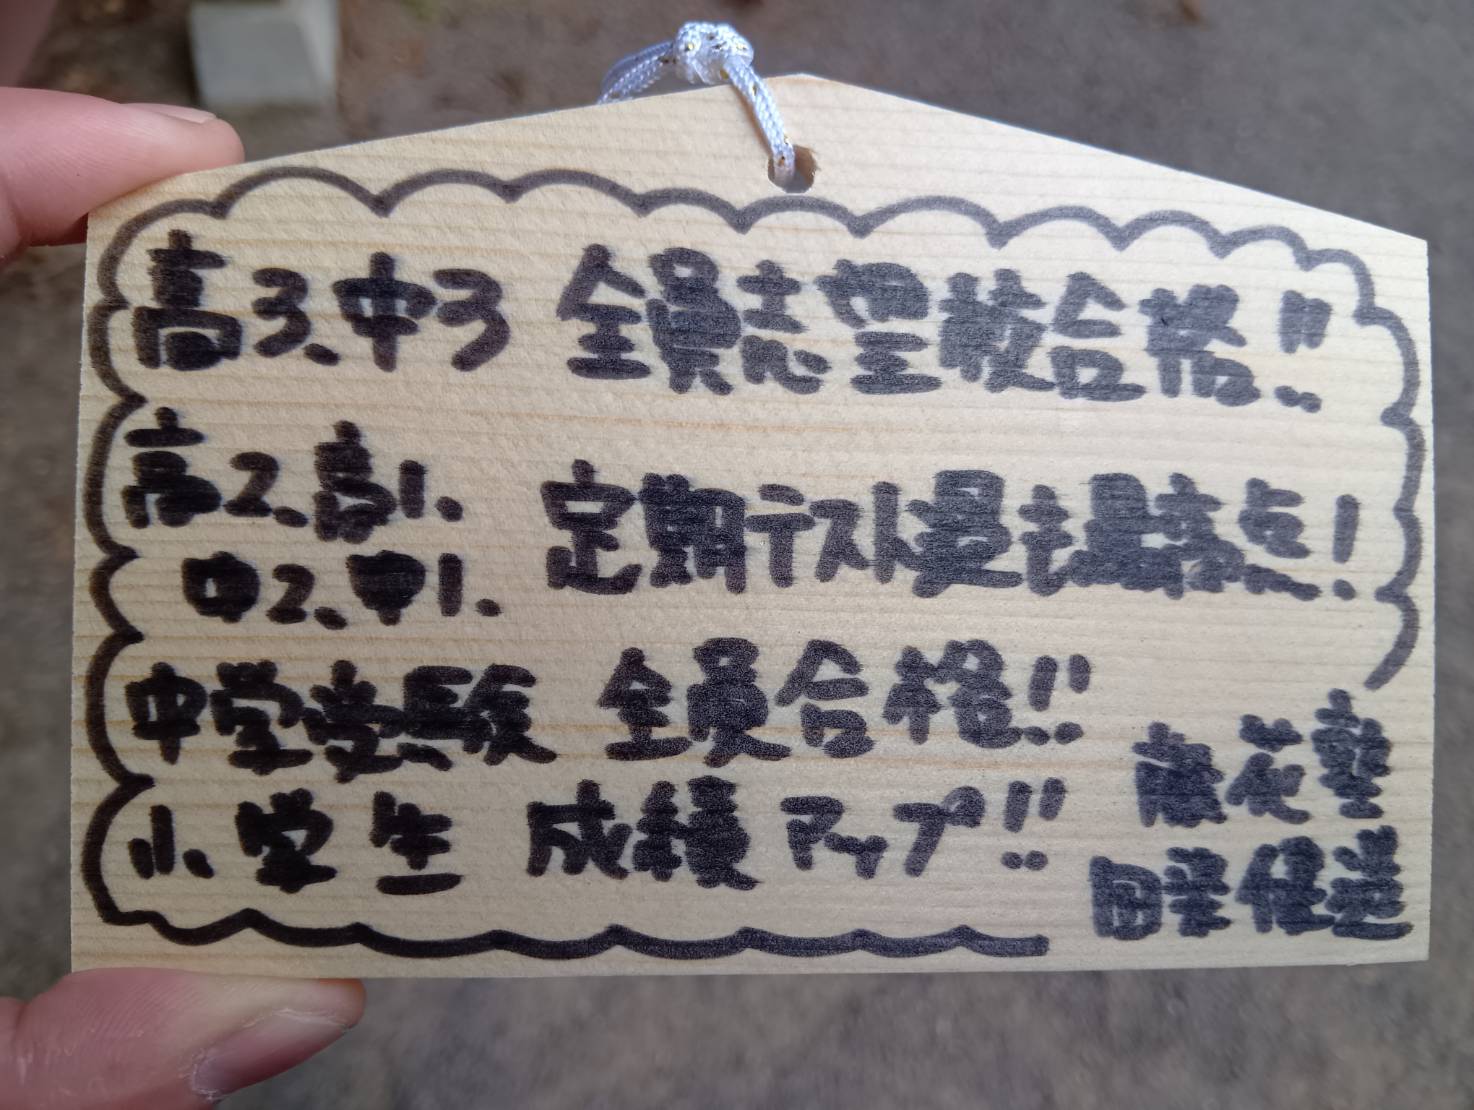 高3、中3 全員志望校合格!!
高2、高1、 定期テスト最も最高点!
中2、中1、
中学受験 全員合格!!
小学生 成績アップ!!
花塾